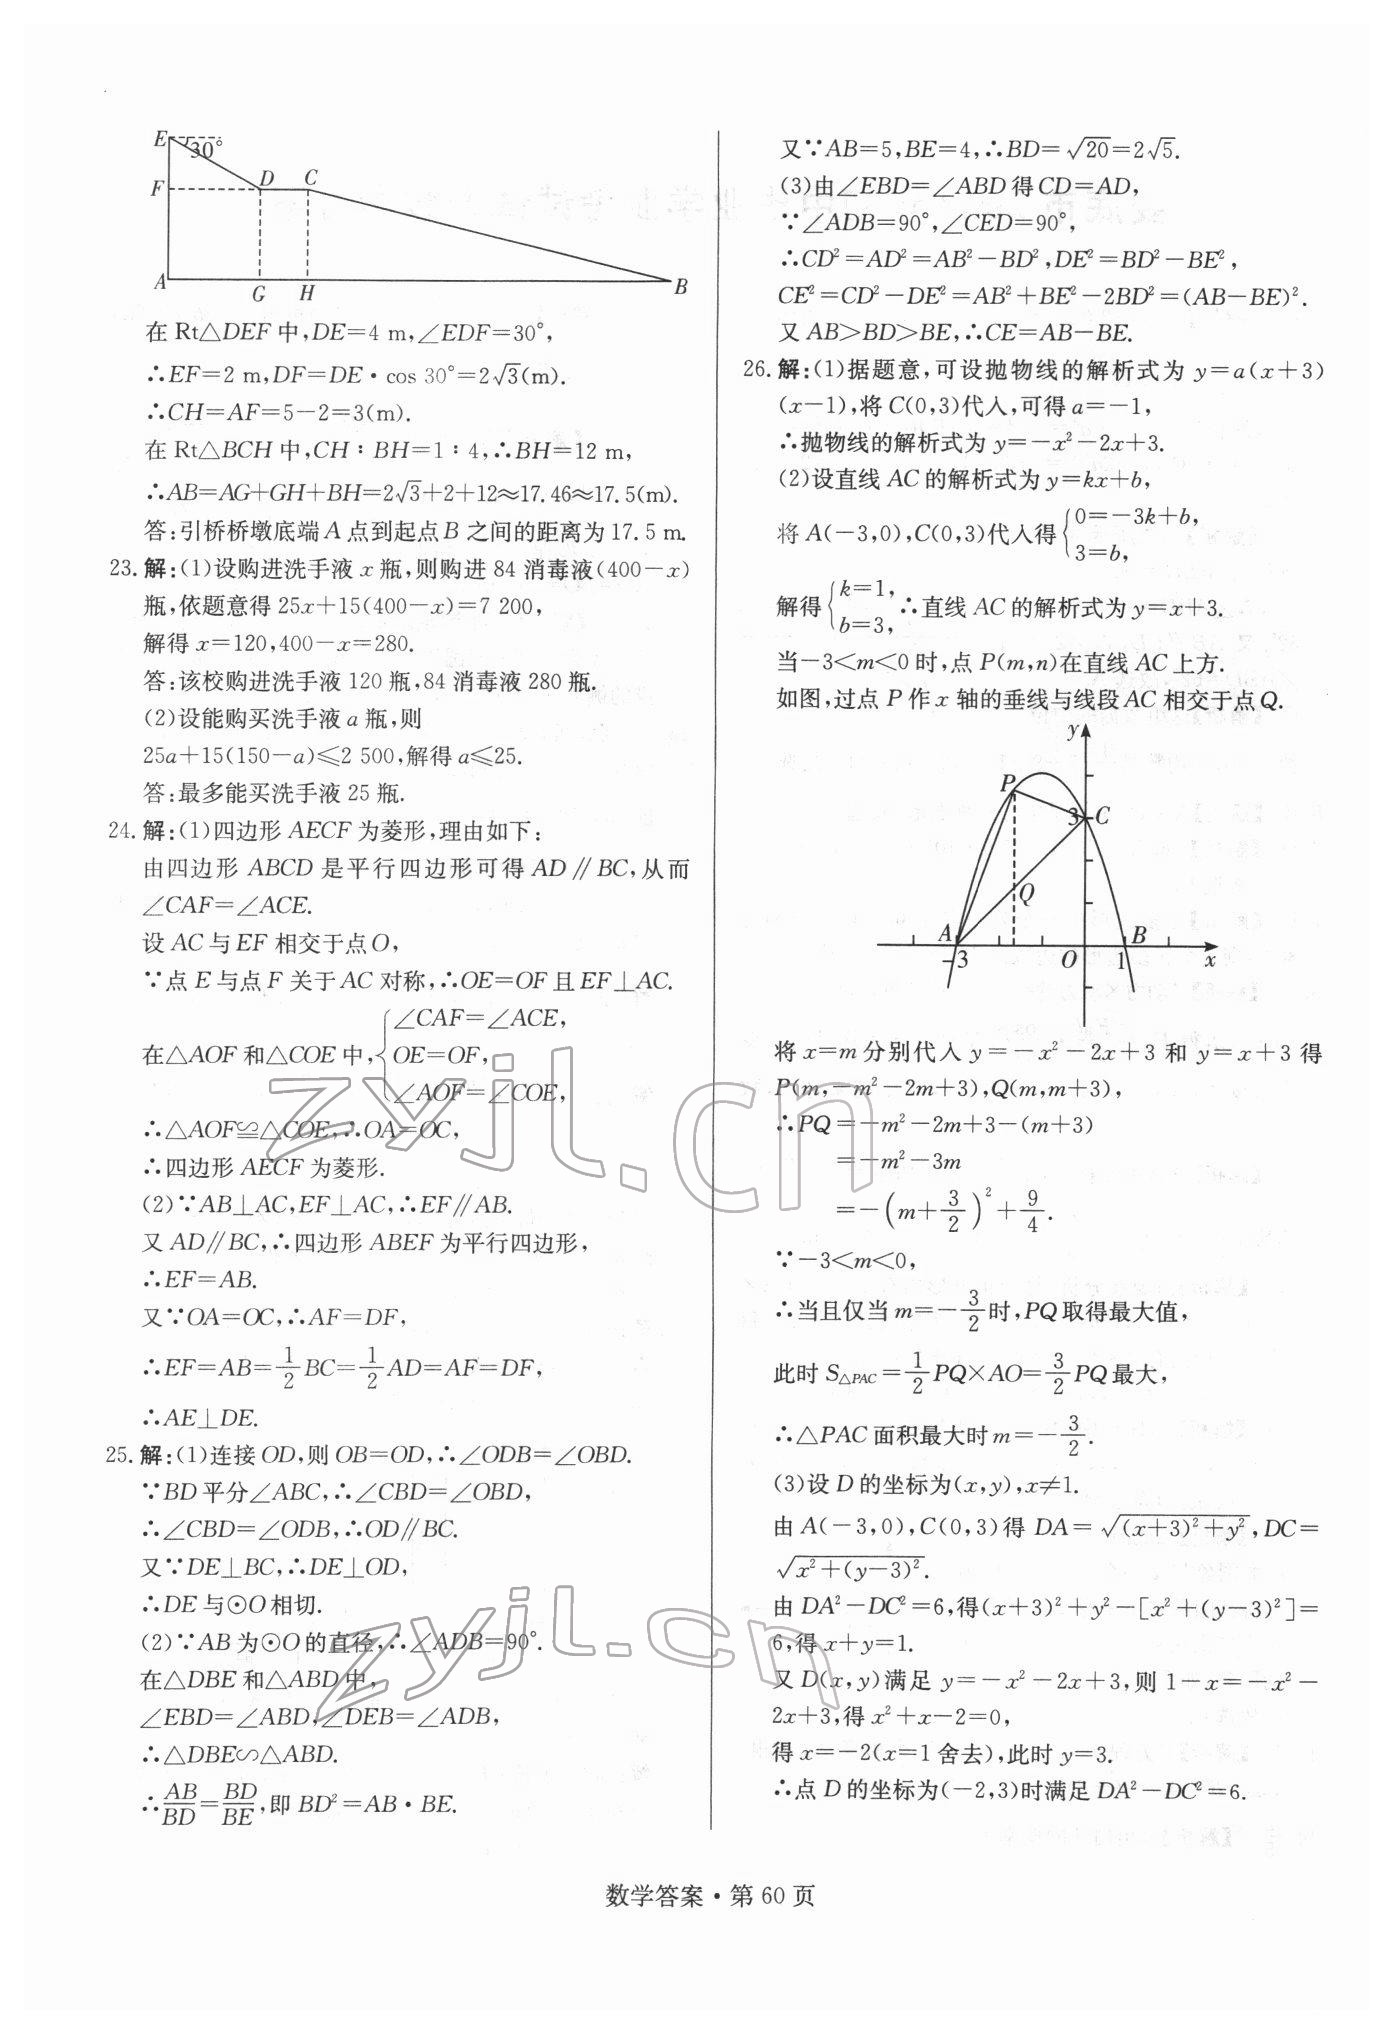 E
30°
F
D
C
A
G
H
B
在 Rt△DEF 中,DE=4 m,∠EDF=30°,
∴EF=2 m,DF=DE·cos 30°=2√3(m).
∴CH=AF=5-2=3(m).
在 Rt△BCH 中,CH∶BH=1∶4,∴BH=12 m,
∴AB=AG+GH+BH=2√3+2+12≈17.46≈17.5(m).
答:引桥桥墩底端 A 点到起点 B 之间的距离为 17.5 m.
23. 解:(1)设购进洗手液 x 瓶,则购进 84 消毒液(400-x)
瓶,依题意得 25x+15(400-x)=7 200,
解得 x=120,400-x=280.
答:该校购进洗手液 120 瓶,84 消毒液 280 瓶.
(2)设能购买洗手液 a 瓶,则
25a+15(150-a)⩽2 500,解得 a⩽25.
答:最多能买洗手液 25 瓶.
24. 解:(1)四边形 AECF 为菱形,理由如下:
由四边形 ABCD 是平行四边形可得 AD∥BC,从而
∠CAF=∠ACE.
设 AC 与 EF 相交于点 O,
∵点 E 与点 F 关于 AC 对称,∴OE=OF 且 EF⊥AC.
在△AOF 和△COE 中,{∠CAF=∠ACE,
OE=OF,
∠AOF=∠COE,
∴△AOF≌△COE,∴OA=OC,
∴四边形 AECF 为菱形.
(2)∵AB⊥AC,EF⊥AC,∴EF∥AB.
又 AD∥BC,∴四边形 ABEF 为平行四边形,
∴EF=AB.
又∵OA=OC,∴AF=DF,
∴EF=AB=1/2 BC=1/2 AD=AF=DF,
∴AE⊥DE.
25. 解:(1)连接 OD,则 OB=OD,∴∠ODB=∠OBD.
∵BD 平分∠ABC,∴∠CBD=∠OBD,
∴∠CBD=∠ODB,∴OD∥BC.
又∵DE⊥BC,∴DE⊥OD,
∴DE 与⊙O 相切.
(2)∵AB 为⊙O 的直径,∴∠ADB=90°.
在△DBE 和△ABD 中,
∠EBD=∠ABD,∠DEB=∠ADB,
∴△DBE∽△ABD.
∴AB/BD=BD/BE,即 BD²=AB·BE.
又∵AB=5,BE=4,∴BD=√20=2√5.
(3)由∠EBD=∠ABD 得 CD=AD,
∵∠ADB=90°,∠CED=90°,
∴CD²=AD²=AB²-BD²,DE²=BD²-BE²,
CE²=CD²-DE²=AB²+BE²-2BD²=(AB-BE)².
又 AB>BD>BE,∴CE=AB-BE.
26. 解:(1)据题意,可设抛物线的解析式为 y=a(x+3)
(x-1),将 C(0,3)代入,可得 a=-1,
∴抛物线的解析式为 y=-x²-2x+3.
(2)设直线 AC 的解析式为 y=kx+b,
将 A(-3,0),C(0,3)代入得{0=-3k+b,
3=b,
解得{k=1,
b=3,∴直线 AC 的解析式为 y=x+3.
当-3<m<0 时,点 P(m,n)在直线 AC 上方.
如图,过点 P 作 x 轴的垂线与线段 AC 相交于点 Q.
y
P
3
C
Q
A
B
-3
O
1
x
将 x=m 分别代入 y=-x²-2x+3 和 y=x+3 得
P(m,-m²-2m+3),Q(m,m+3),
∴PQ=-m²-2m+3-(m+3)
=-m²-3m
=-(m+3/2)²+9/4.
∵-3<m<0,
∴当且仅当 m=-3/2时,PQ 取得最大值,
此时 S△PAC=1/2 PQ×AO=3/2 PQ 最大,
∴△PAC 面积最大时 m=-3/2.
(3)设 D 的坐标为(x,y),x≠1.
由 A(-3,0),C(0,3)得 DA=√((x+3)²+y²),DC=
√(x²+(y-3)²).
由 DA²-DC²=6,得(x+3)²+y²-[x²+(y-3)²]=
6,得 x+y=1.
又 D(x,y)满足 y=-x²-2x+3,则 1-x=-x²-
2x+3,得 x²+x-2=0,
得 x=-2(x=1 舍去),此时 y=3.
∴点 D 的坐标为(-2,3)时满足 DA²-DC²=6.
zyjl.cn
zyjl.cn
数学答案·第 60 页